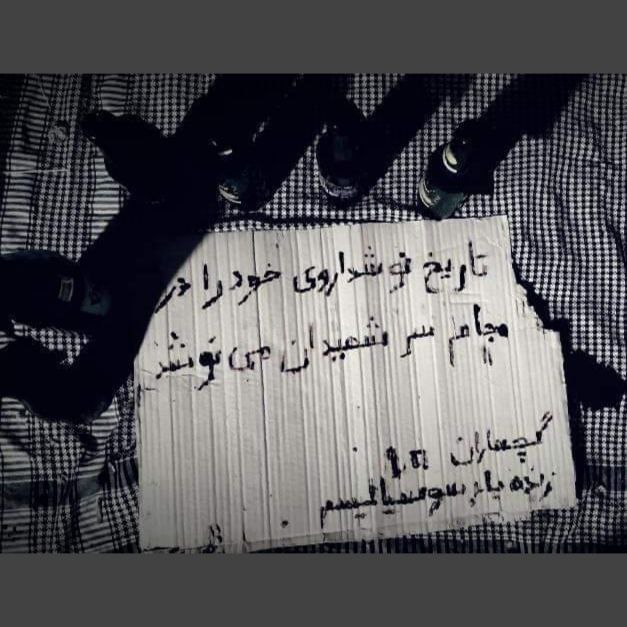 تاریخ نوشداروی خود را در
سر شهیدان می نوشد
گچساران
زنده باد سوسیالیسم